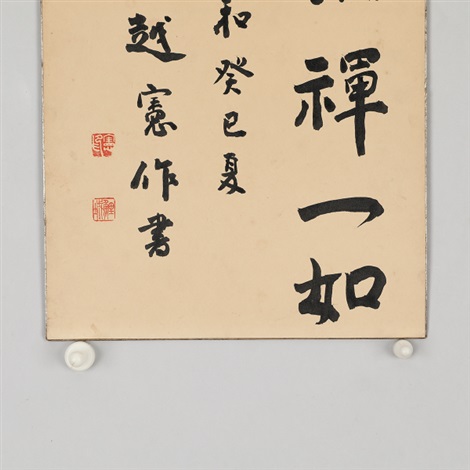 禪一如
和癸巳夏
越憲作書